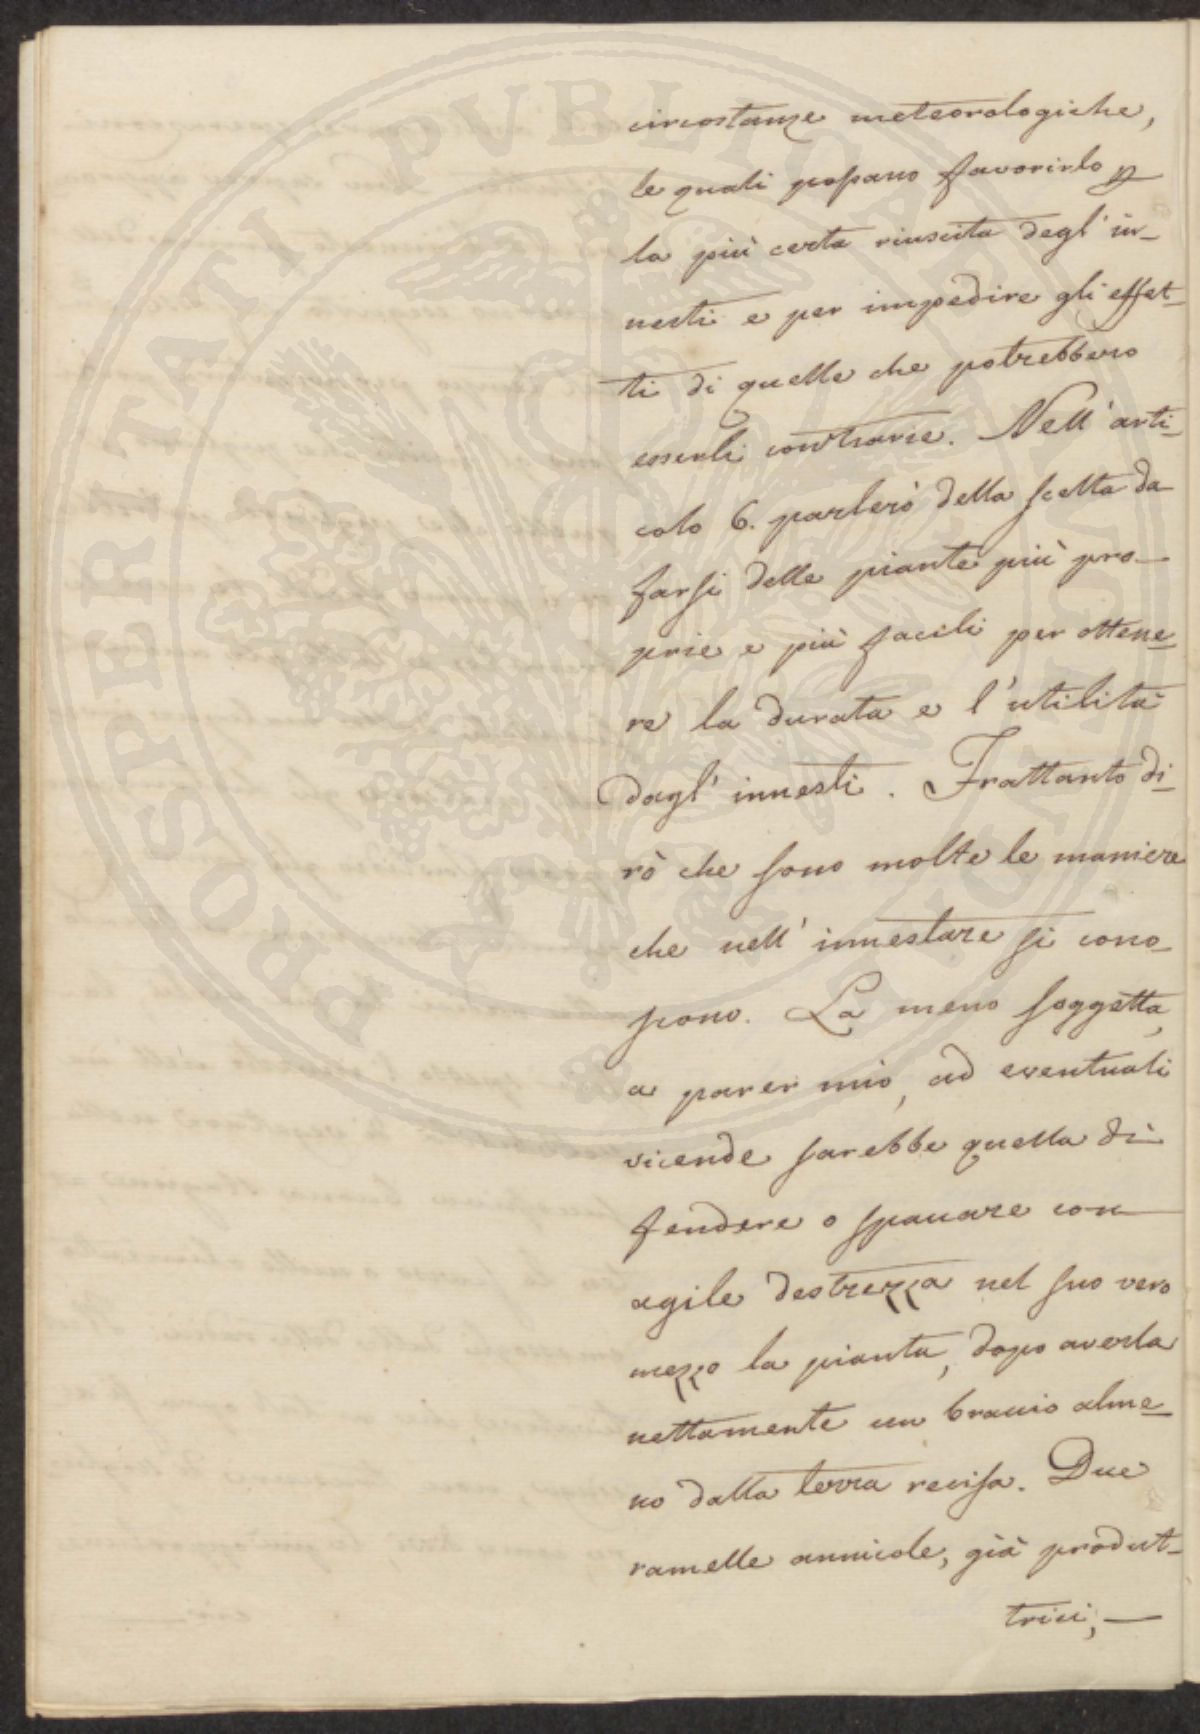 circostanze meteorologiche,
le quali possano favorirlo p
la più certa riuscita degl' in-
nesti e per impedire gli effet-
ti di quelle che potrebbero
esserli contrarie. Nell' arti-
colo 6. parlerò della scelta da
farsi delle piante più pro-
prie e più facili per ottene-
re la durata e l'utilità
dagl' innesti. Frattanto di-
rò che sono molte le maniere
che nell' innestare si cono-
scono. La meno soggetta,
a parer mio, ad eventuali
vicende sarebbe quella di
fendere o spaccare con
agile destrezza nel suo vero
mezzo la pianta, dopo averla
nettamente un braccio alme-
no dalla terra recisa. Due
ramelle annicole, già produt-
trici,
PROSPERITATI PVBLICAE AVGENDAE